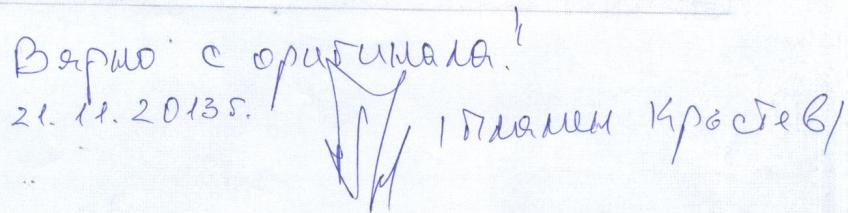 Вярно с оригинала!"
21.11.2013г. /Пламен Кръстев/